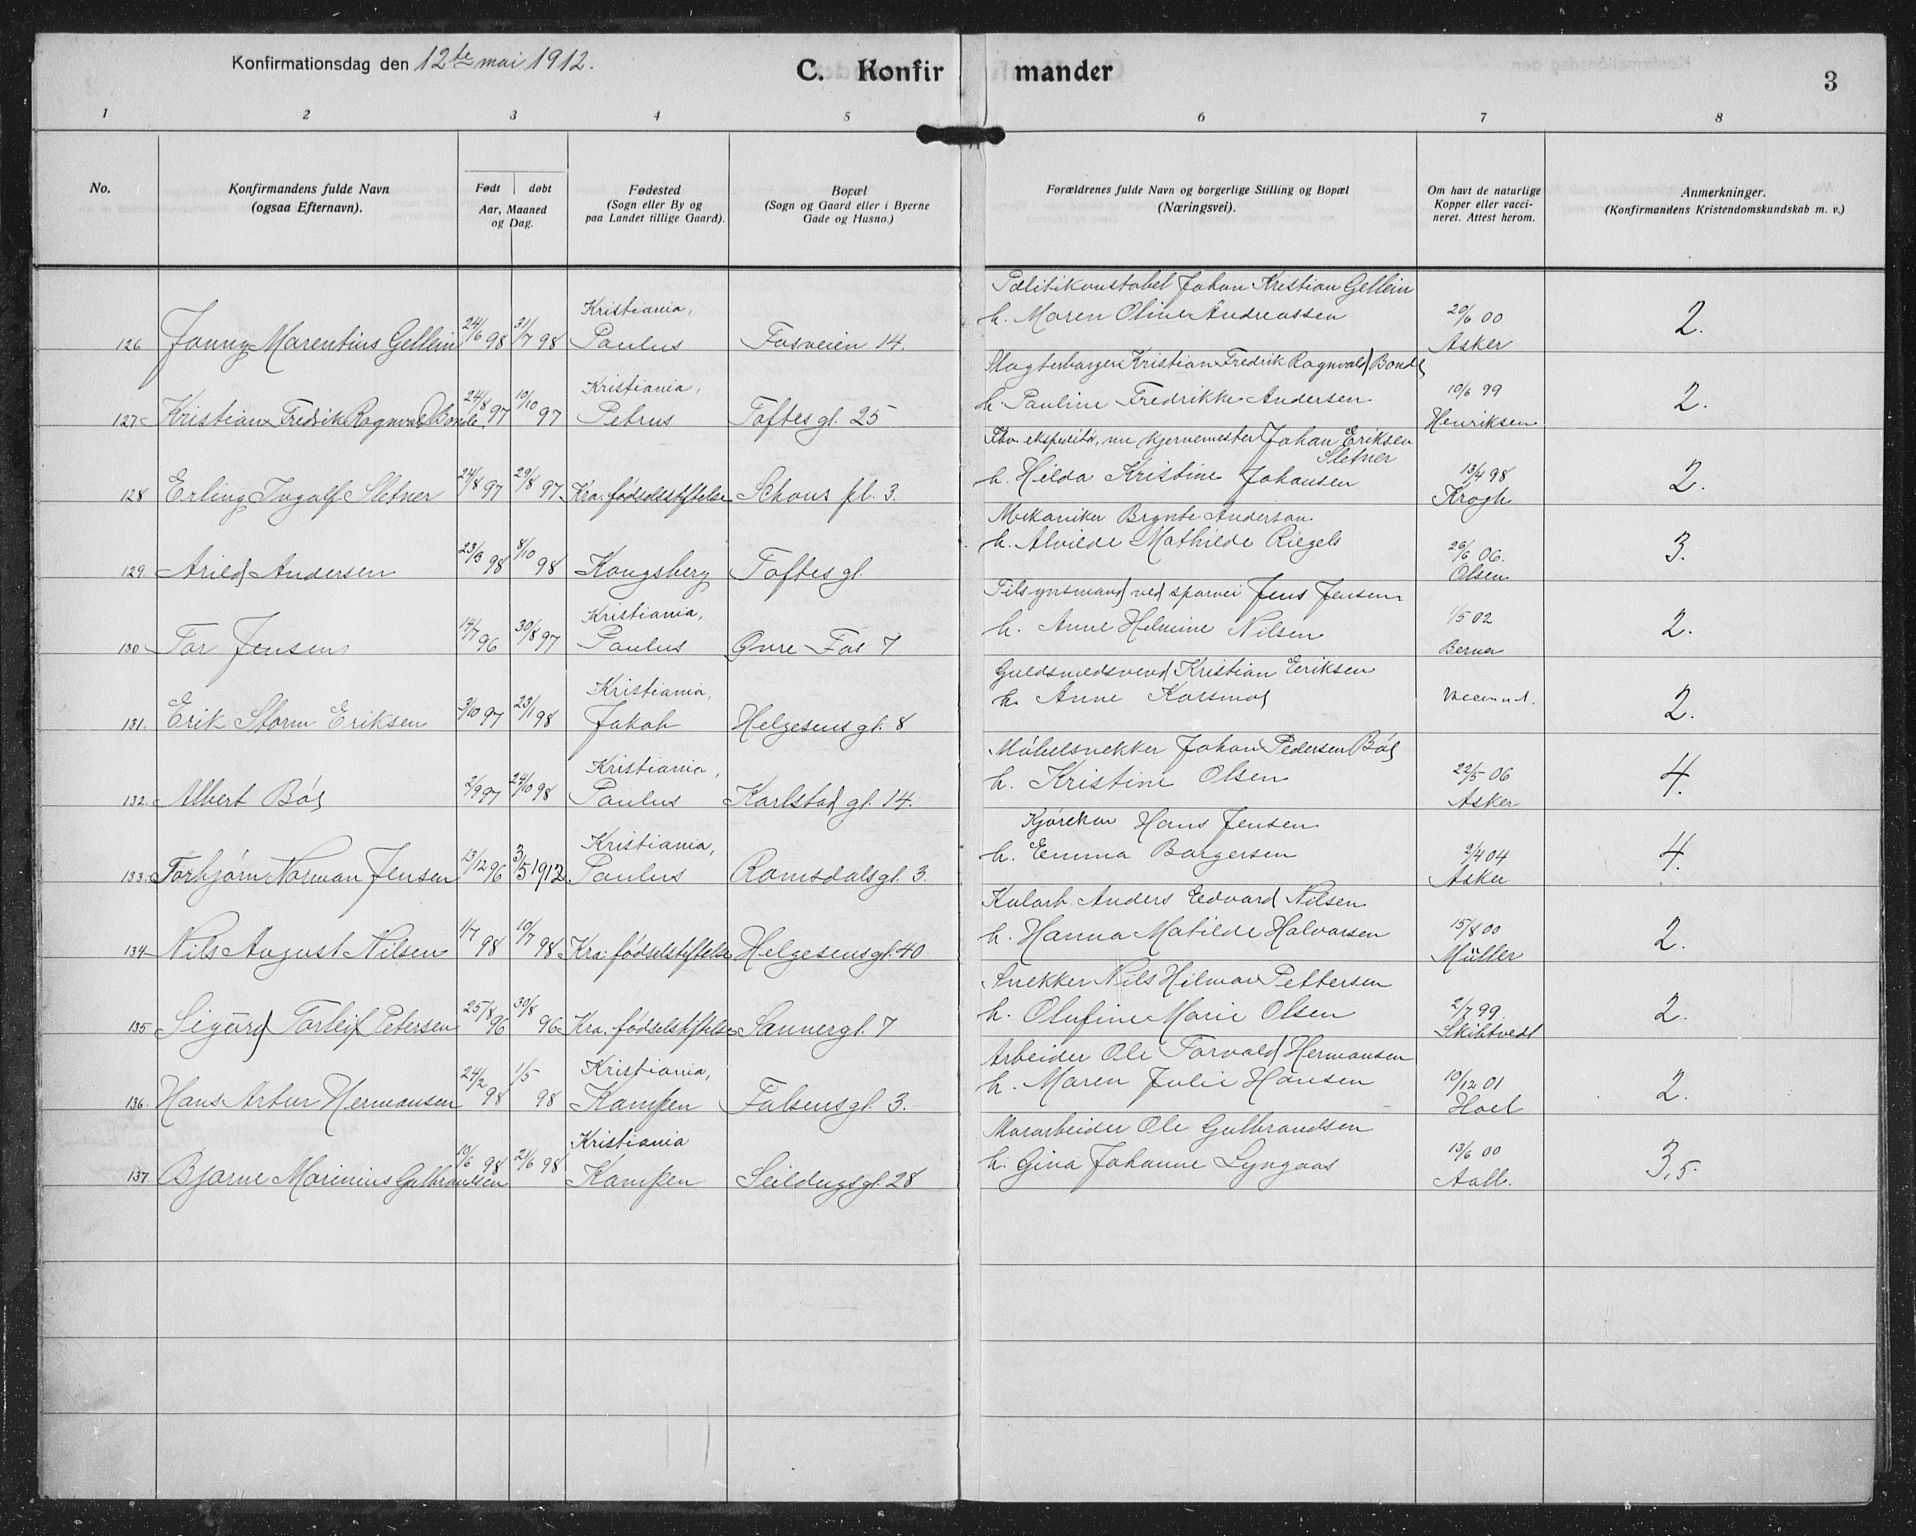 Konfirmationsdag den 12te mai 1912.
C. Konfirmander
3
1 2 3 4 5 6 7 8
No.
Konfirmandens fulde Navn
(ogsaa Efternavn).
Født | døbt
Aar, Maaned
og Dag.
Fødested
(Sogn eller By og
paa Landet tillige Gaard).
Bopæl
(Sogn og Gaard eller i Byerne
Gade og Husno.)
Forældrenes fulde Navn og borgerlige Stilling og Bopæl
(Næringsvei).
Om havt de naturlige
Kopper eller vacci-
neret. Attest herom.
Anmerkninger.
(Konfirmandens Kristendomskundskab m. v.)
Politikonstabel Johan Kristian Gellein
Kristiania, h. Maren Oline Andreassen 20/6 00
126 Jonny Marentius Gellein 24/6 98 31/7 98 Paulus Fosveien 14. Asker 2.
Slagterborger Kristian Fredrik Ragnvald Bonde
Kristiania, h. Pauline Fredrikke Andersen 10/6 99
127 Kristian Fredrik Ragnvald Bonde 24/8 97 10/10 97 Petrus Toftes gl. 25 Henriksen 2.
Fhv. ekspeditør, nu kjernemester Johan Eriksen
Sletner
128 Erling Ingolf Sletner 24/8 97 29/8 97 Kra. fødselsstiftelse Schous pl. 3. h. Hilda Kristine Johansen 13/4 98 2.
Krogh
Mekaniker Brynte Anderson
h. Alvilde Mathilde Riegels 26/6 06.
129. Arild Andersen 23/3 98 8/10 98 Kongsberg Toftes gl. Olsen 3.
Tilsynsmand ved sporvei Jens Jensen
Kristiania, h. Anne Helmine Nilsen 1/5 02
130 Tor Jensen 14/7 96 30/8 97 Paulus Øvre Fos 7 Berner 2.
Guldsmedsvend Kristian Eriksen
Kristiania, h. Anne Korsmo
131. Erik Storm Eriksen 3/10 97 23/1 98 Jakob Helgesens gl. 8 2.
Møbelsnekker Johan Pedersen Bøe
Kristiania, h. Kristine Olsen 22/5 06
132. Albert Bøe 2/9 97 24/10 98 Paulus Karlstad gl. 14. Asker 4.
Kjørekar Hans Jensen
Kristiania, h. Emma Borgersen 2/4 04
133. Torbjørn Norman Jensen 13/12 96 3/5 1912 Paulus Romsdalsgl. 3. Asker 4.
Kularb. Anders Edvard Nilsen
h. Hanna Matilde Halvorsen 15/8 00
134 Nils August Nilsen 1/7 98 10/7 98 Kra. fødselstiftelse Helgesensgl. 40 Müller 2.
Snekker Nils Hilmar Pettersen
h. Olufine Marie Olsen 2/7 99.
135 Sigurd Torleif Petersen 25/8 96 30/8 96 Kra. fødselstiftelse Sannergl. 7 Skibtvedt 2.
Arbeider Ole Torvald Hermansen
Kristiania, h. Maren Julie Hansen 10/12 01
136. Hans Artur Hermansen 24/2 98 1/5 98 Kampen Falsensgl. 3. Hoel 2.
Murarbeider Ole Gulbrandsen
Kristiania h. Gina Johanne Lyngaas 13/6 00
137. Bjarne Marinius Gulbrandsen 13/6 98 21/6 98 Kampen Seildugsgl. 28 Aall. 3,5.